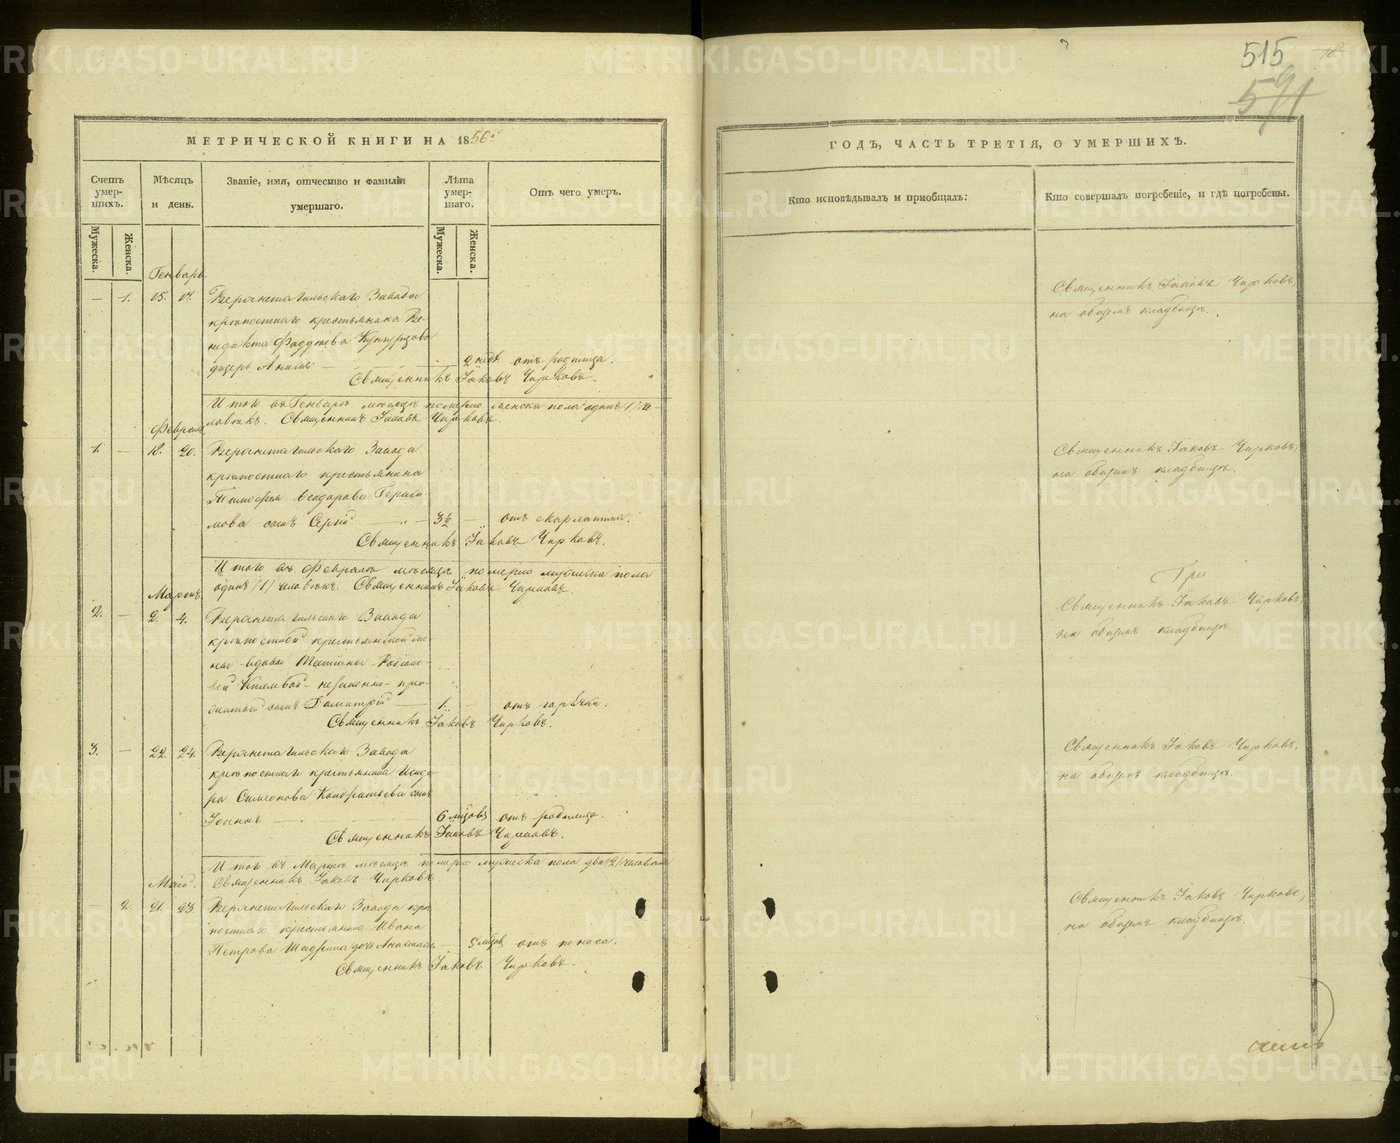 515
591
МЕТРИЧЕСКОЙ КНИГИ НА 1856й
Счетъ умер-шихъ.
Мѣсяцъ и день.
Званіе, имя, отчество и фамилія умершаго.
Лѣта умер-шаго.
Отъ чего умеръ.
Мужеска.
Женска.
Мужеска.
Женска.
Генварь
— 1. 15. 17. Верхнетагильскаго Завода
крѣпостнаго крестьянина Ве-
недикта Фаддѣева
дщерь Анна — 2 нед. отъ родимца.
Священникъ Іаковъ Чирковъ.
Итого въ Генварѣ мѣсяцѣ померло женска пола одинъ /1/ че-
ловѣкъ. Священникъ Іаковъ Чирковъ.
Февраль.
1. — 18. 20. Верхнетагильскаго Завода
крѣпостнаго крестьянина
Тимофея Ѳеодорова Гераси-
мова сынъ Сергій — 3½ — отъ скарлатины.
Священникъ Іаковъ Чирковъ.
Итого въ Февралѣ мѣсяцѣ померло мужеска пола
одинъ /1/ человѣкъ. Священникъ Іаковъ Чирковъ.
Мартъ.
2. — 2. 4. Верхнетагильскаго Завода
крѣпостной крестьянской же-
ны вдовы Татіаны
незаконно-при-
житый сынъ Димитрій — 1. — отъ горячки.
Священникъ Іаковъ Чирковъ.
3. — 22. 24. Верхнетагильскаго Завода
крѣпостнаго крестьянина Исидо-
ра Симеонова Кондратьева сынъ
Іоаннъ — 6 мѣсцовъ отъ родимца.
Священникъ Іаковъ Чирковъ.
Итого въ Мартѣ мѣсяцѣ померло мужеска пола два /2/ человѣка
Священникъ Іаковъ Чирковъ.
Маій.
— 2. 21. 23. Верхнетагильскаго Завода крѣ-
постнаго крестьянина Ивана
Петрова Шадрина дочь Анастасія — 5 мѣсц. отъ поноса.
Священникъ Іаковъ Чирковъ.
ГОДЪ, ЧАСТЬ ТРЕТІЯ, О УМЕРШИХЪ.
Кто исповѣдывалъ и пріобщалъ:
Кто совершалъ погребеніе, и гдѣ погребены.
Священникъ Іаковъ Чирковъ,
на общемъ кладбищѣ.
Священникъ Іаковъ Чирковъ,
на общемъ кладбищѣ.
Священникъ Іаковъ Чирковъ,
на общемъ кладбищѣ.
Священникъ Іаковъ Чирковъ,
на общемъ кладбищѣ.
Священникъ Іаковъ Чирковъ,
на общемъ кладбищѣ.
METRIKI.GASO-URAL.RU